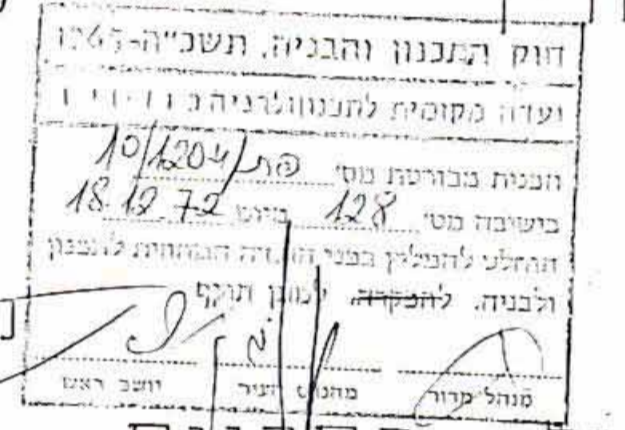 חוק התכנון והבניה, תשכ״ה-1965
ועדה מקומית לתכנון
תכנית מפורטת מס׳ פת/1204/10
בישיבה מס׳ 128 מיום 18.12.72
הוחלט להמליץ בפני הועדה המחוזית לתכנון
ולבניה. להפקדה. למתן תוקף
מנהל מדור מהנדס העיר יושב ראש